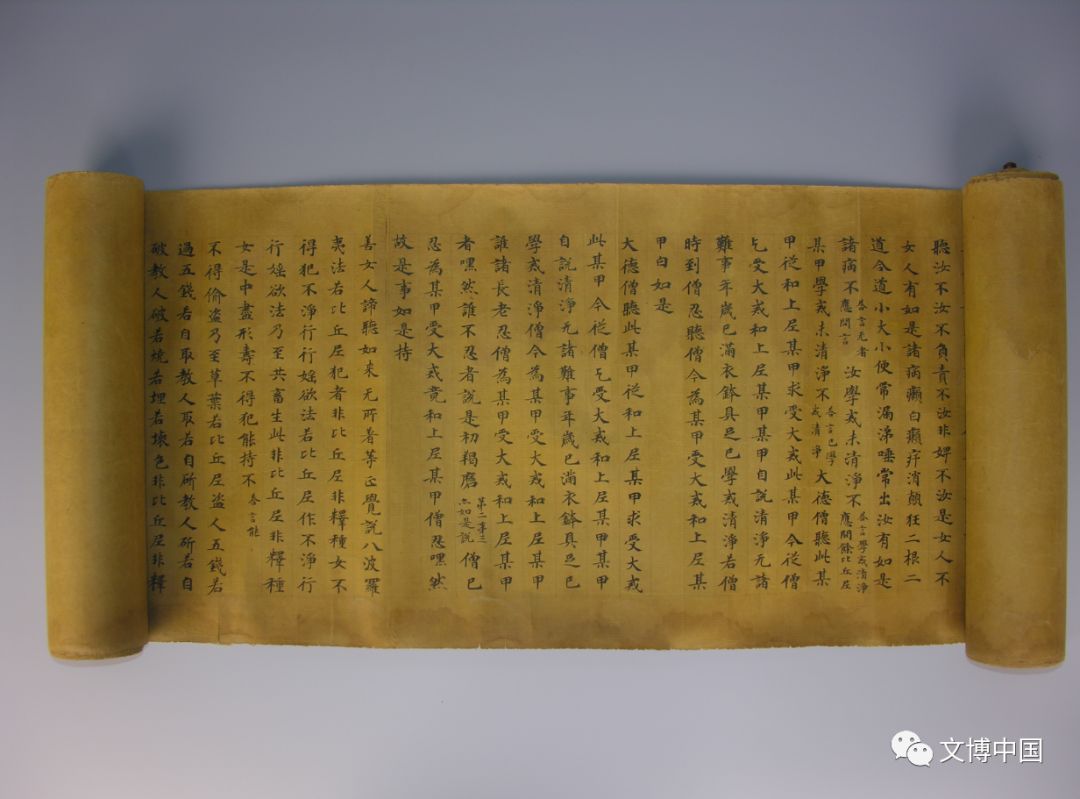 聽汝不汝不負責不汝非婢不汝是女人不
女人有如是諸病癩白癩疥消顛狂二根二
道合道小大小便常漏涕唾常出汝有如是
諸病不答言无者應問言汝學戒未清淨不答言學戒清淨應問餘比丘尼
某甲學戒未清淨不答言已學戒清淨大德僧聽此某
甲從和上尼某甲求受大戒此某甲今從僧
乞受大戒和上尼某甲某甲自說清淨无諸
難事年歲已滿衣鉢具足已學戒清淨若僧
時到僧忍聽僧今為某甲受大戒和上尼某
甲白如是
大德僧聽此某甲從和上尼某甲求受大戒
此某甲今從僧乞受大戒和上尼某甲某甲
自說清淨无諸難事年歲已滿衣鉢具足已
學戒清淨僧今為某甲受大戒和上尼某甲
誰諸長老忍僧為某甲受大戒和上尼某甲
者嘿然誰不忍者說是初羯磨第二第三亦如是說僧已
忍為某甲受大戒竟和上尼某甲僧忍嘿然
故是事如是持
善女人諦聽如來无所著等正覺說八波羅
夷法若比丘尼犯者非比丘尼非釋種女不
得犯不淨行行婬欲法若比丘尼作不淨行
行婬欲法乃至共畜生此非比丘尼非釋種
女是中盡形壽不得犯能持不答言能
不得偷盜乃至草葉若比丘尼盜人五錢若
過五錢若自取教人取若自斫教人斫若自
破教人破若燒若埋若壞色非比丘尼非釋
文博中国